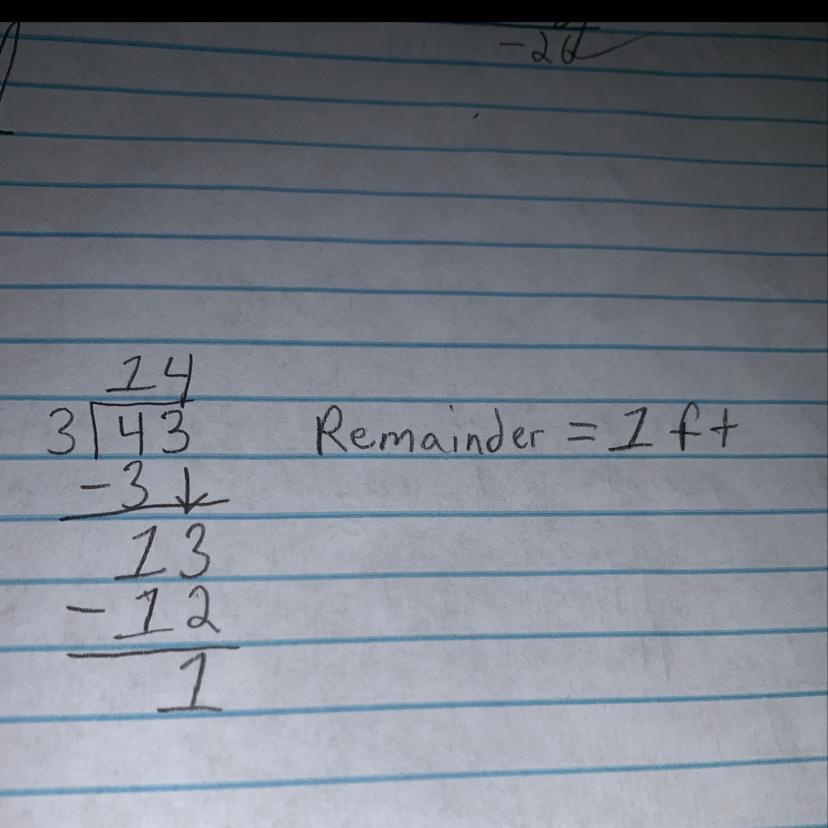 14
3 43 Remainder = 1 ft
-3
13
-12
1